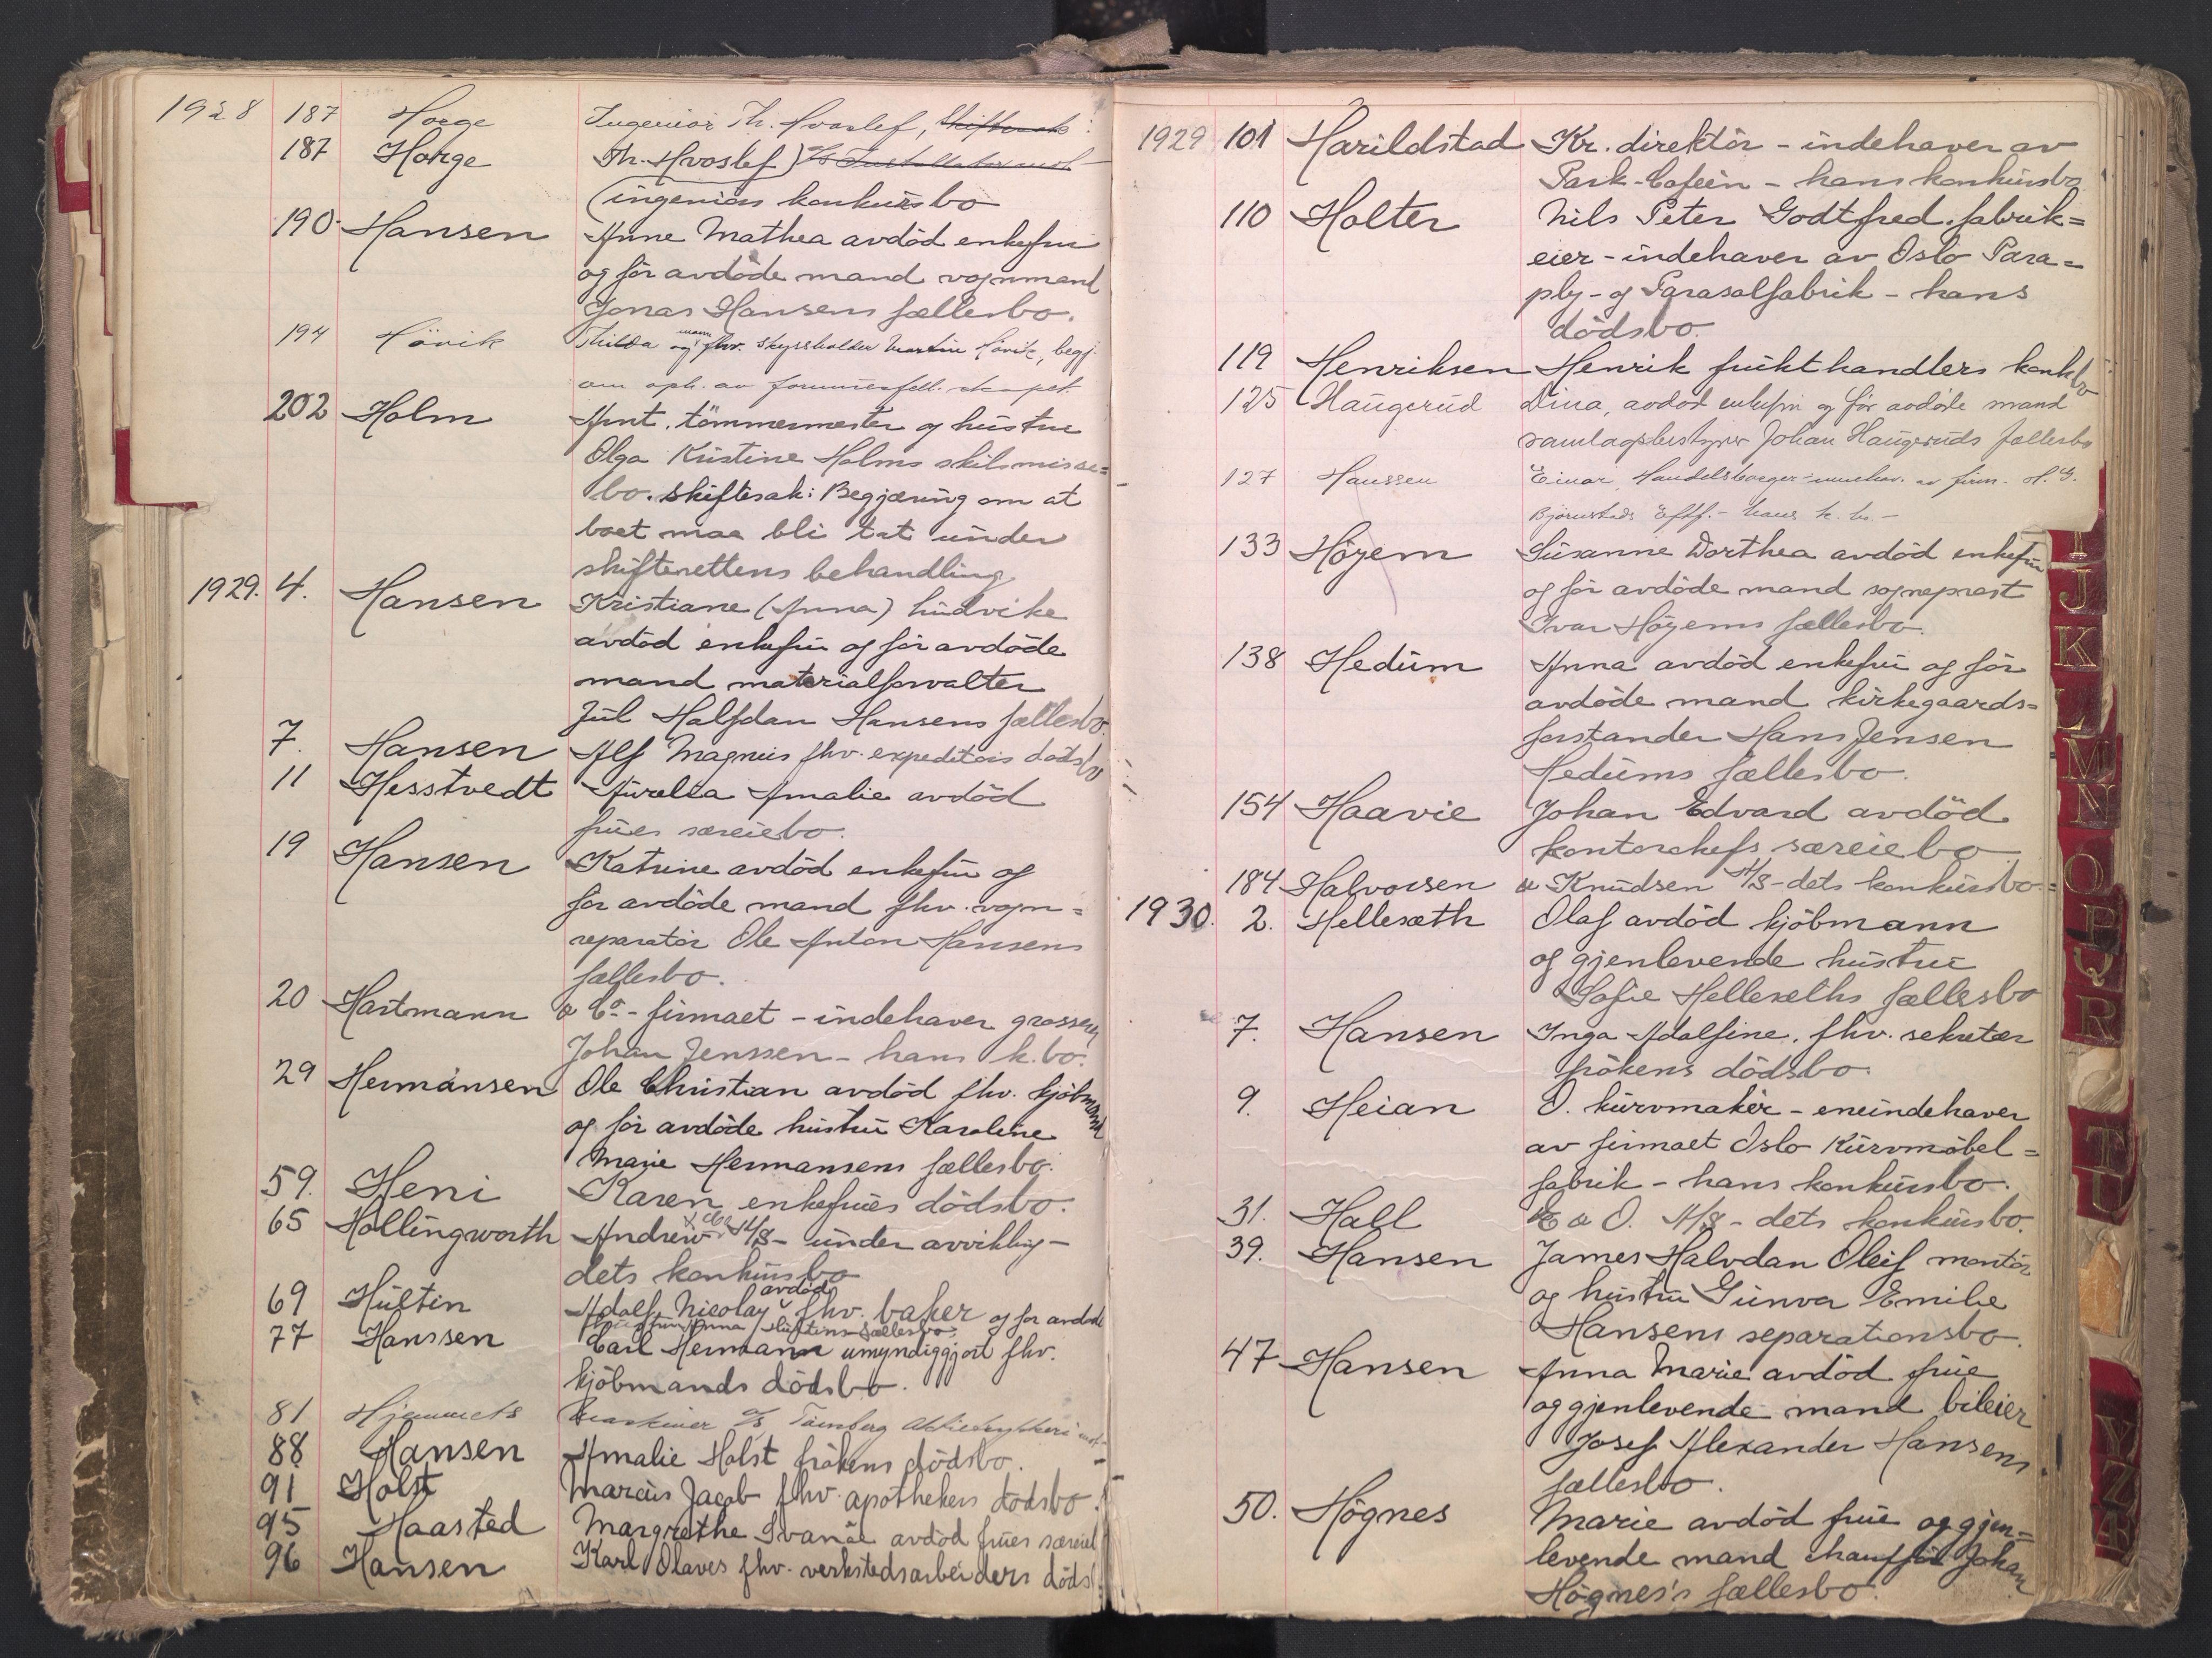 1928 187 Horge Ingeniör Th. Hvoslef, Skiftesak:
187 Horge Th. Hvoslef)
(ingeniörs konkursbo
190 Hansen Anne Mathea avdöd enkefru
og för avdöde mand vognmand
Jonas Hansens fællesbo.
194 Hövik Thilda og mann fhv. skyssholder Martin Hövik, begj.
om oph. av formuesfell. skapet.
202 Holm Arnt. tömmermester og hustru
Olga Kristine Holms skilsmisse=
bo. Skiftesak: Begjæring om at
boet maa bli tat under
skifterettens behandling
1929. 4. Hansen Kristiane (Anna) Ludvike
avdöd enkefru og för avdöde
mand materialforvalter
Jul Halfdan Hansens fællesbo.
7. Hansen Alf Magnus fhv. expeditörs dödsbo
11 Hesstvedt Aurella Amalie avdöd
frues særeiebo.
19 Hansen Katrine avdöd enkefru og
för avdöde mand fhv. vogn=
reparatör Ole Anton Hansens
fællesbo.
20 Hartmann & Co - firmaet - indehaver grosserer
Johan Jenssen - hans k.bo.
29 Hermansen Ole Christian avdöd fhv. kjöbmand
og för avdöde hustru Karoline
Marie Hermansens fællesbo.
59. Heni Karen enkefrues dödsbo.
65 Hollingworth Andrew & Co A/S - under avvikling -
dets konkursbo
69 Hultin Adolf Nicolay avdöd fhv. baker og for avdöde
hustru Anna Hultins fællesbo.
77 Hanssen Carl Hermann umyndiggjort fhv.
kjöbmands dödsbo.
81 Hjemmets Maskiner A/S Aktietrykkeri
88 Hansen Amalie Holst frökens dödsbo.
91 Holst Marcus Jacob fhv. apothekers dödsbo.
95 Haasted Margrethe avdöd frues
96 Hansen Karl Olaves fhv. verkstedsarbeiders
1929 101 Harildstad Kr. direktör - indehaver av
Park-Cafeen - hans konkursbo
110 Holter Nils Peter Godtfred. fabrik=
eier - indehaver av Oslo Para=
ply- og Parasolfabrik - hans
dödsbo.
119 Henriksen Henrik frukthandlers konk.bo
125 Haugerud Dina, avdöd enkefru og för avdöde mand
samlagsbestyrer Johan Haugeruds fællesbo
127 Hanssen Einar, Handelsborger - innehav. av firm. H. G.
Björnstads Eftf. - hans k. bo. -
133 Höyem Susanne Dorthea avdöd enkefru
og för avdöde mand sogneprest
Ivar Höyems fællesbo.
138 Hedum Anna avdöd enkefru og för
avdöde mand kirkegaards=
forstander Hans Jensen
Hedums fællesbo.
154 Haavie Johan Edvard avdöd
kontorchefs særeiebo
184 Halvorsen & Knudsen A/S - dets konkursbo.
1930. 2. Hellesæth Olaf avdöd kjöbmann
og gjenlevende hustru
Sofie Helleseths fællesbo
7. Hansen Inga Adolfine. fhv. sekretær
frökens dödsbo.
9. Heian O. kurvmaker - eneindehaver
av firmaet Oslo Kurvmöbel=
fabrik - hans konkursbo.
31. Hall E & O. A/S - dets konkursbo.
39. Hansen James Halvdan Oleif montör
og hustru Gunvor Emilie
Hansens separationsbo.
47 Hansen Anna Marie avdöd frue
og gjenlevende mand bileier
Josef Alexander Hansens
fællesbo.
50. Högnes Marie avdöd frue og gjen=
levende mand chaufför Johan
Högnes's fællesbo.
I
J
K
L
M
N
O
P
Q
R
T
U
Y
Z
Æ